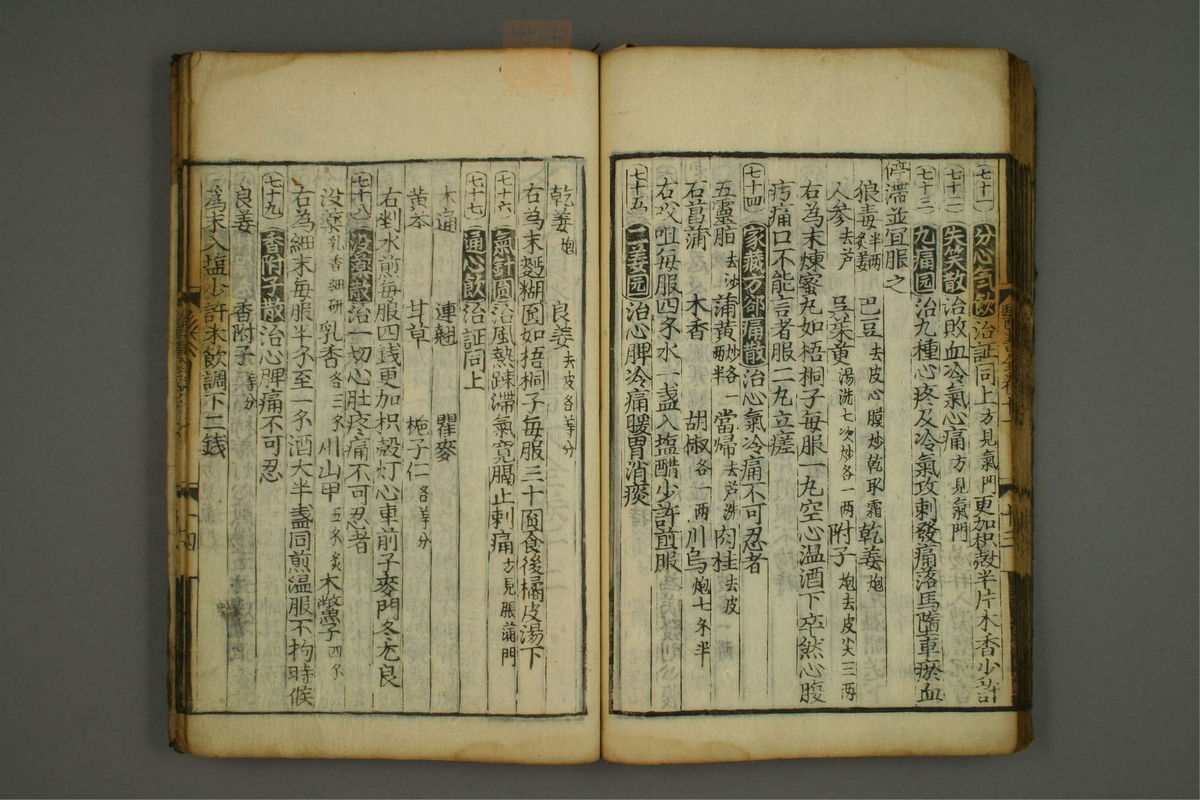 七十一 分心气飲 治証同上方見氣門更加枳殼半片木香少許
七十二 失笑散 治敗血冷氣心痛方見氣門
七十三 九痛园 治九種心疼及冷氣攻刺發痛落馬墮車瘀血
停滯並宜服之
狼毒半两炙姜 巴豆去皮心膜炒乾取霜 乾姜炮
人参去芦 吳茱萸湯洗七次炒各一两 附子炮去皮尖三两
右為末煉蜜丸如梧桐子每服一丸空心温酒下卒然心腹
疞痛口不能言者服二丸立瘥
七十四 家藏方郤痛散 治心氣冷痛不可忍者
五靈脂去沙 蒲黄炒各一两半 當歸去芦洗 肉桂去皮
石菖蒲 木香 胡椒各一两 川烏炮七朱半
右㕮咀每服四朱水一盏入塩醋少許煎服
七十五 二姜园 治心脾冷痛暖胃消痰
乾姜炮 良姜去皮各等分
右為末麪糊圆如梧桐子每服三十圆食後橘皮湯下
七十六 氣針圆 治風熱踈滯氣寛膈止刺痛方見脹滿門
七十七 通心飲 治証同上
木通 連翹 瞿麥
黄芩 甘草 梔子仁各等分
右剉水煎每服四錢更加枳殼灯心車前子麥門冬尤良
七十八 没藥散 治一切心肚疼痛不可忍者
没藥乳香細研 乳香各三朱 川山甲五朱炙 木鱉子四朱
右為細末每服半朱至一朱酒大半盏同煎温服不拘時候
七十九 香附子散 治心脾痛不可忍
良姜 香附子等分
為末入塩少許末飲調下二錢